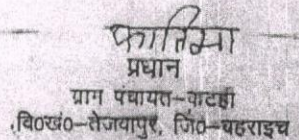 फातिमा
प्रधान
ग्राम पंचायत-चाटहा
वि०खं०-तेजवापुर, जि०-बहराइच